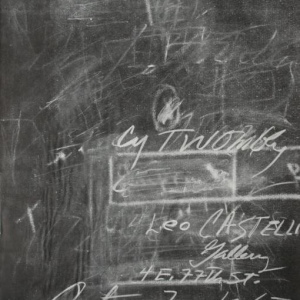 Cy TWOMBLY
Leo CASTELLI
Gallery
4 E. 77th St.